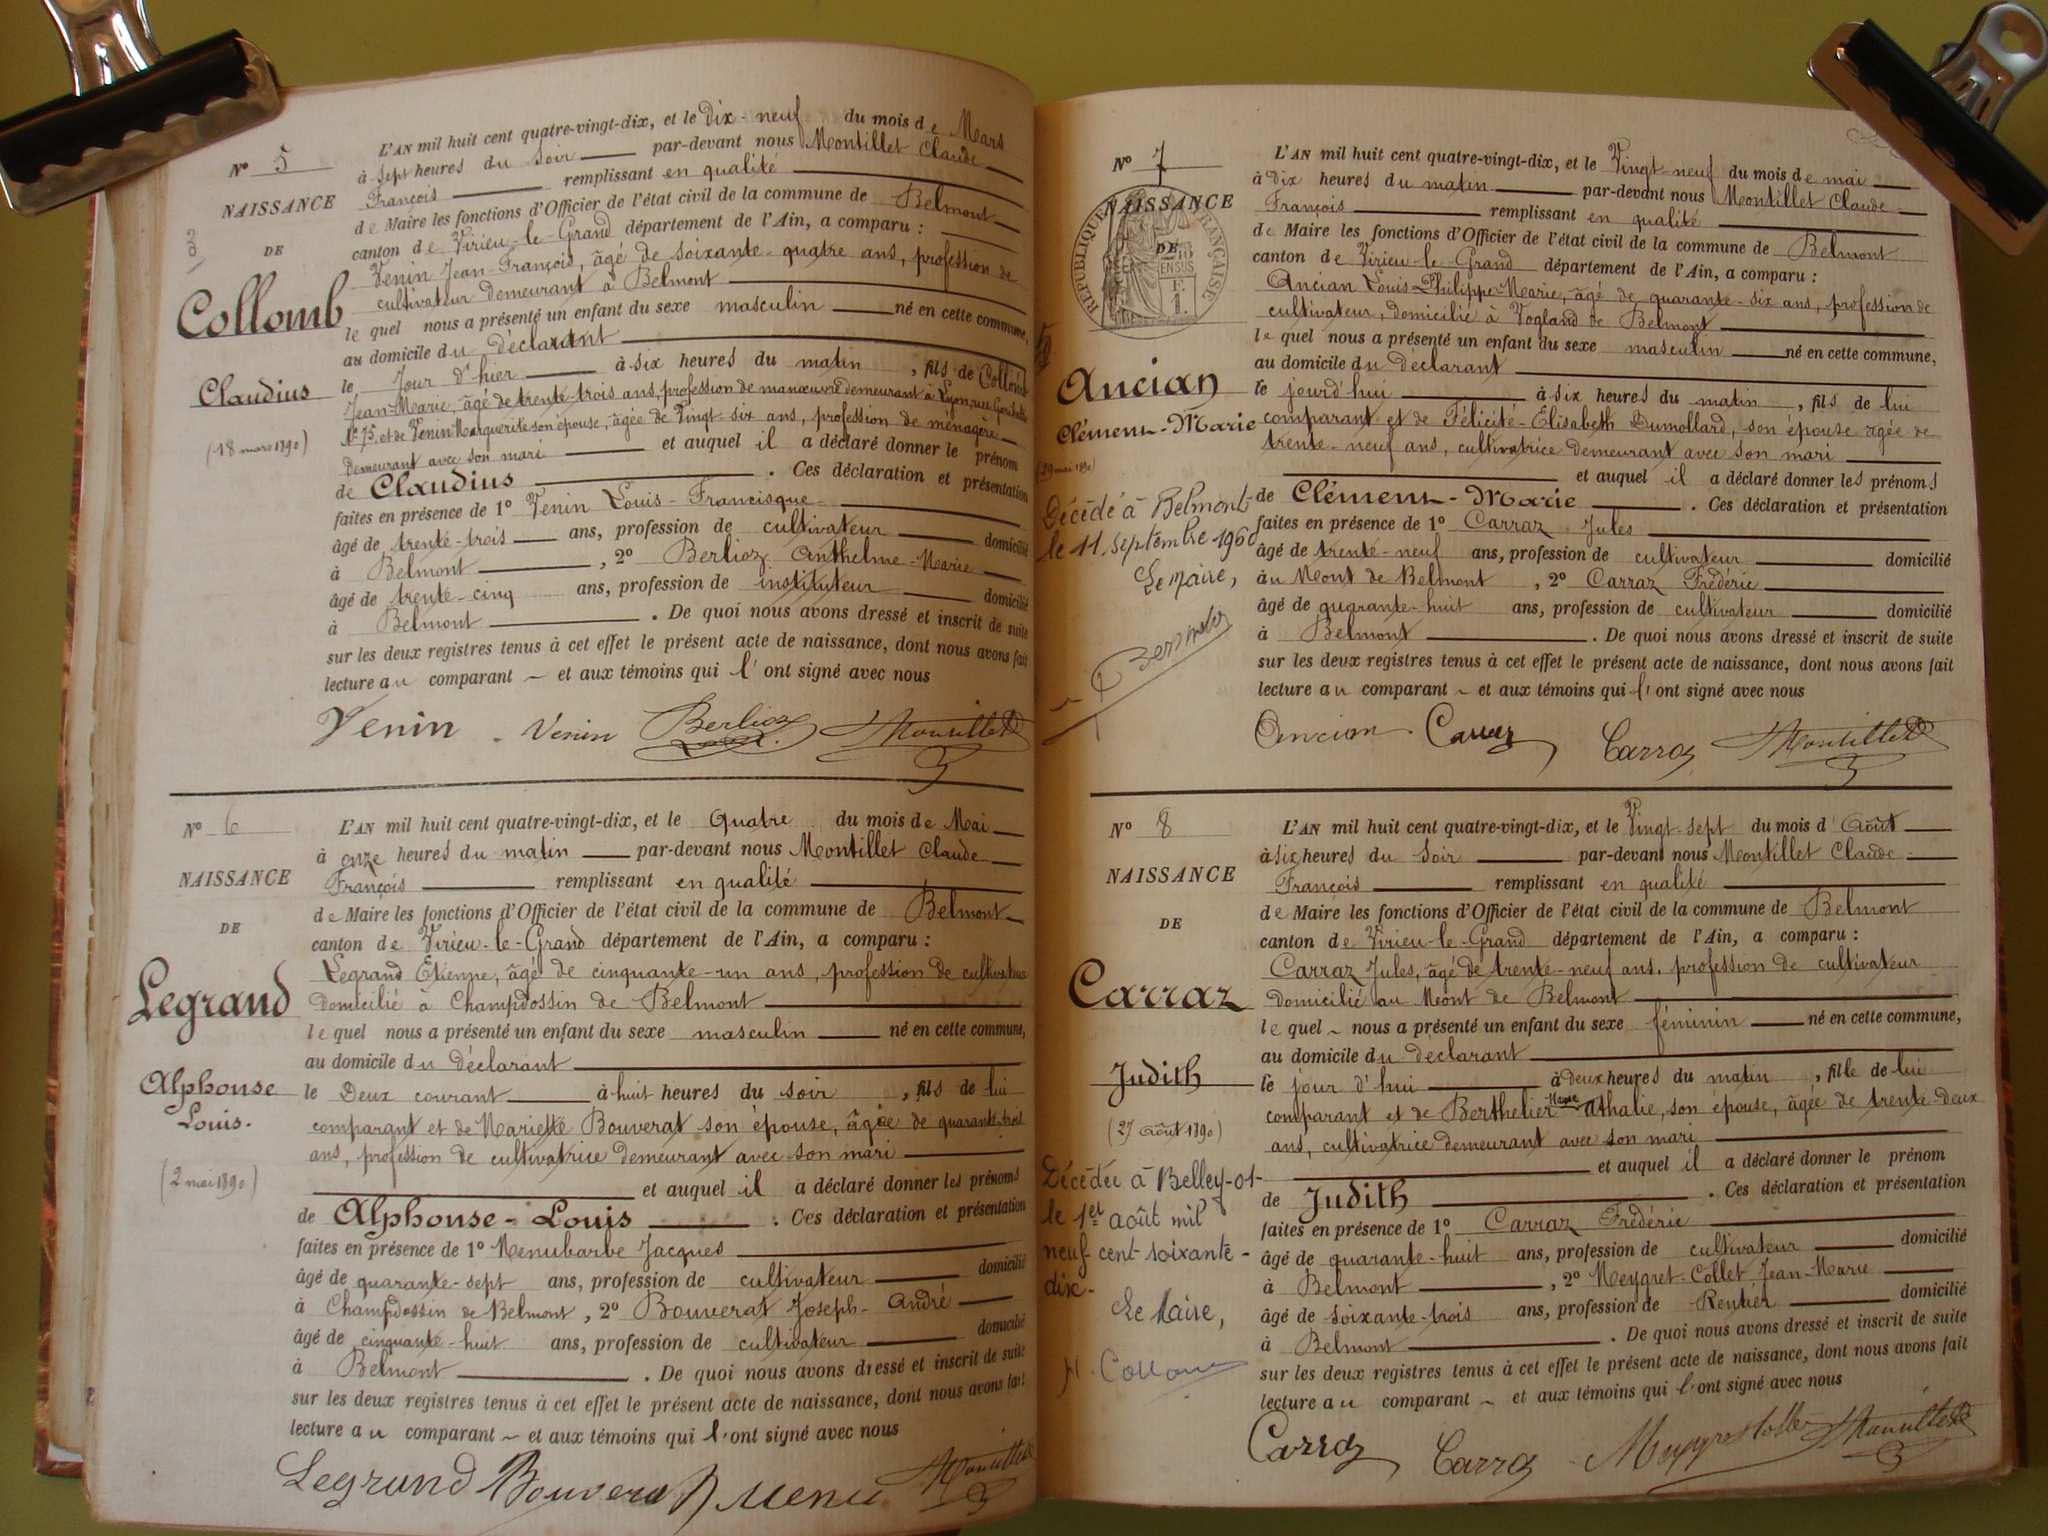 N° 5
NAISSANCE
DE
Collomb
Claudius
(18 mars 1890)
L'AN mil huit cent quatre-vingt-dix, et le Dix-neuf du mois de Mars
à sept heures du soir par-devant nous Montillet Claude
François remplissant en qualité
de Maire les fonctions d'Officier de l'état civil de la commune de Belmont
canton de Virieu-le-Grand département de l'Ain, a comparu :
Venin Jean-François, âgé de soixante-quatre ans, profession de
cultivateur demeurant à Belmont
le quel nous a présenté un enfant du sexe masculin né en cette commune,
au domicile du déclarant
le Jour d'hier à six heures du matin, fils de Collomb
Jean-Marie, âgé de trente-trois ans, profession de manœuvre demeurant à Lyon, rue
N° 75, et de Venin Marguerite son épouse, âgée de Vingt-six ans, profession de ménagère
demeurant avec son mari et auquel il a déclaré donner le prénom
de Claudius. Ces déclaration et présentation
faites en présence de 1° Venin Louis-Francisque
âgé de trente-trois ans, profession de cultivateur domicilié
à Belmont, 2° Berlioz Anthelme-Marie
âgé de trente-cinq ans, profession de instituteur domicilié
à Belmont. De quoi nous avons dressé et inscrit de suite
sur les deux registres tenus à cet effet le présent acte de naissance, dont nous avons fait
lecture au comparant et aux témoins qui l'ont signé avec nous
Venin Venin Berlioz Montillet
N° 6
NAISSANCE
DE
Legrand
Alphonse
Louis.
(2 mai 1890)
L'AN mil huit cent quatre-vingt-dix, et le Quatre du mois de Mai
à onze heures du matin par-devant nous Montillet Claude
François remplissant en qualité
de Maire les fonctions d'Officier de l'état civil de la commune de Belmont
canton de Virieu-le-Grand département de l'Ain, a comparu :
Legrand Etienne, âgé de cinquante-un ans, profession de cultivateur
domicilié à Champdossin de Belmont
le quel nous a présenté un enfant du sexe masculin né en cette commune,
au domicile du déclarant
le Deux courant à huit heures du soir, fils de lui
comparant et de Mariette Bouverat son épouse, âgée de quarante-trois
ans, profession de cultivatrice demeurant avec son mari
et auquel il a déclaré donner les prénoms
de Alphonse-Louis. Ces déclaration et présentation
faites en présence de 1° Menubarbe Jacques
âgé de quarante-sept ans, profession de cultivateur domicilié
à Champdossin de Belmont, 2° Bouverat Joseph-André
âgé de cinquante-huit ans, profession de cultivateur domicilié
à Belmont. De quoi nous avons dressé et inscrit de suite
sur les deux registres tenus à cet effet le présent acte de naissance, dont nous avons fait
lecture au comparant et aux témoins qui l'ont signé avec nous
Legrand Bouverat Menu Montillet
N° 7
NAISSANCE
DE
RÉPUBLIQUE FRANÇAISE
Ancian
Clément-Marie
(29 mai 1890)
Décédé à Belmont
le 11 septembre 1960
Le Maire,
L'AN mil huit cent quatre-vingt-dix, et le Vingt-neuf du mois de mai
à dix heures du matin par-devant nous Montillet Claude
François remplissant en qualité
de Maire les fonctions d'Officier de l'état civil de la commune de Belmont
canton de Virieu-le-Grand département de l'Ain, a comparu :
Ancian Louis-Philippe-Marie, âgé de quarante-six ans, profession de
cultivateur, domicilié à Vogland de Belmont
le quel nous a présenté un enfant du sexe masculin né en cette commune,
au domicile du déclarant
le jourd'hui à six heures du matin, fils de lui
comparant et de Félicité-Elisabeth Dumollard, son épouse âgée de
trente-neuf ans, cultivatrice demeurant avec son mari
et auquel il a déclaré donner les prénoms
de Clément-Marie. Ces déclaration et présentation
faites en présence de 1° Carraz Jules
âgé de trente-neuf ans, profession de cultivateur domicilié
au Mont de Belmont, 2° Carraz Frédéric
âgé de quarante-huit ans, profession de cultivateur domicilié
à Belmont. De quoi nous avons dressé et inscrit de suite
sur les deux registres tenus à cet effet le présent acte de naissance, dont nous avons fait
lecture au comparant et aux témoins qui l'ont signé avec nous
Ancian Carraz Carraz Montillet
N° 8
NAISSANCE
DE
Carraz
Judith
(27 Août 1890)
Décédée à Belley-01-
le 1er août mil
neuf-cent-soixante-
dix-
Le Maire,
L'AN mil huit cent quatre-vingt-dix, et le Vingt-sept du mois d'Août
à six heures du soir par-devant nous Montillet Claude
François remplissant en qualité
de Maire les fonctions d'Officier de l'état civil de la commune de Belmont
canton de Virieu-le-Grand département de l'Ain, a comparu :
Carraz Jules, âgé de trente-neuf ans, profession de cultivateur
domicilié au Mont de Belmont
le quel nous a présenté un enfant du sexe féminin né en cette commune,
au domicile du déclarant
le jour d'hui à deux heures du matin, fille de lui
comparant et de Berthelier Marie Athalie, son épouse, âgée de trente-deux
ans, cultivatrice demeurant avec son mari
et auquel il a déclaré donner le prénom
de Judith. Ces déclaration et présentation
faites en présence de 1° Carraz Frédéric
âgé de quarante-huit ans, profession de cultivateur domicilié
à Belmont, 2° Meygret-Collet Jean-Marie
âgé de soixante-trois ans, profession de Rentier domicilié
à Belmont. De quoi nous avons dressé et inscrit de suite
sur les deux registres tenus à cet effet le présent acte de naissance, dont nous avons fait
lecture au comparant et aux témoins qui l'ont signé avec nous
Carraz Carraz Montillet